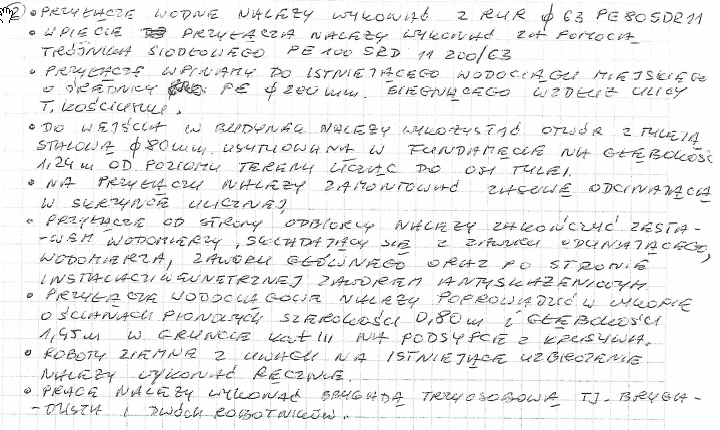 2) • PRZYŁĄCZE WODNE NALEŻY WYKONAĆ Z RUR ϕ 63 PE80SDR11
• WPIĘCIE PRZYŁĄCZA NALEŻY WYKONAĆ ZA POMOCĄ
TRÓJNIKA SIODŁOWEGO PE 100 SRD 11 200/63
• PRZYŁĄCZE WPINAMY DO ISTNIEJĄCEGO WODOCIĄGU MIEJSKIEGO
O ŚREDNICY PE ϕ 200mm. BIEGNĄCEGO WZDŁUŻ ULICY
T. KOŚCIUSZKI.
• DO WEJŚCIA W BUDYNEK NALEŻY WYKOŻYSTAĆ OTWÓR Z TULEJĄ
STALOWĄ ϕ 80mm USYTUOWANĄ W FUNDAMĘCIE NA GŁĘBOKOŚĆ
1,24m OD POZIOMU TERENU LICZĄC DO OSI TULEI.
• NA PRZYŁĄCZU NALEŻY ZAMONTOWAĆ ZASUWĘ ODCINAJĄCĄ
W SKRZYNCE ULICZNEJ
• PRZYŁĄCZE OD STRONY ODBIORCY NALEŻY ZAKOŃCZYĆ ZESTA-
-WEM WODOMIERZY, SKŁADAJĄCY SIĘ Z ZAWORU ODCINAJĄCEGO,
WODOMIERZA, ZAWORU GŁÓWNEGO ORAZ PO STRONIE
INSTALACJI WEWNĘTRZNEJ ZAWOREM ANTYSKAŻENIOWYM.
• PRZYŁĄCZE WODOCIĄGOWE NALEŻY POPROWADZIĆ W WYKOPIE
O ŚCIANACH PIONOWYCH SZEROKOŚCI 0,80m i GŁĘBOKOŚCI
1,45m W GRUNCIE kat III NA PODSYPCE Z KRUSZYWA.
• ROBOTY ZIEMNE Z UWAGI NA ISTNIEJĄCE UZBROJENIE
NALEŻY WYKONAĆ RĘCZNIE.
• PRACE NALEŻY WYKONAĆ BRYGADĄ TRZYOSOBOWĄ TJ. BRYGA-
-DZISTA I DWÓCH ROBOTNIKÓW.